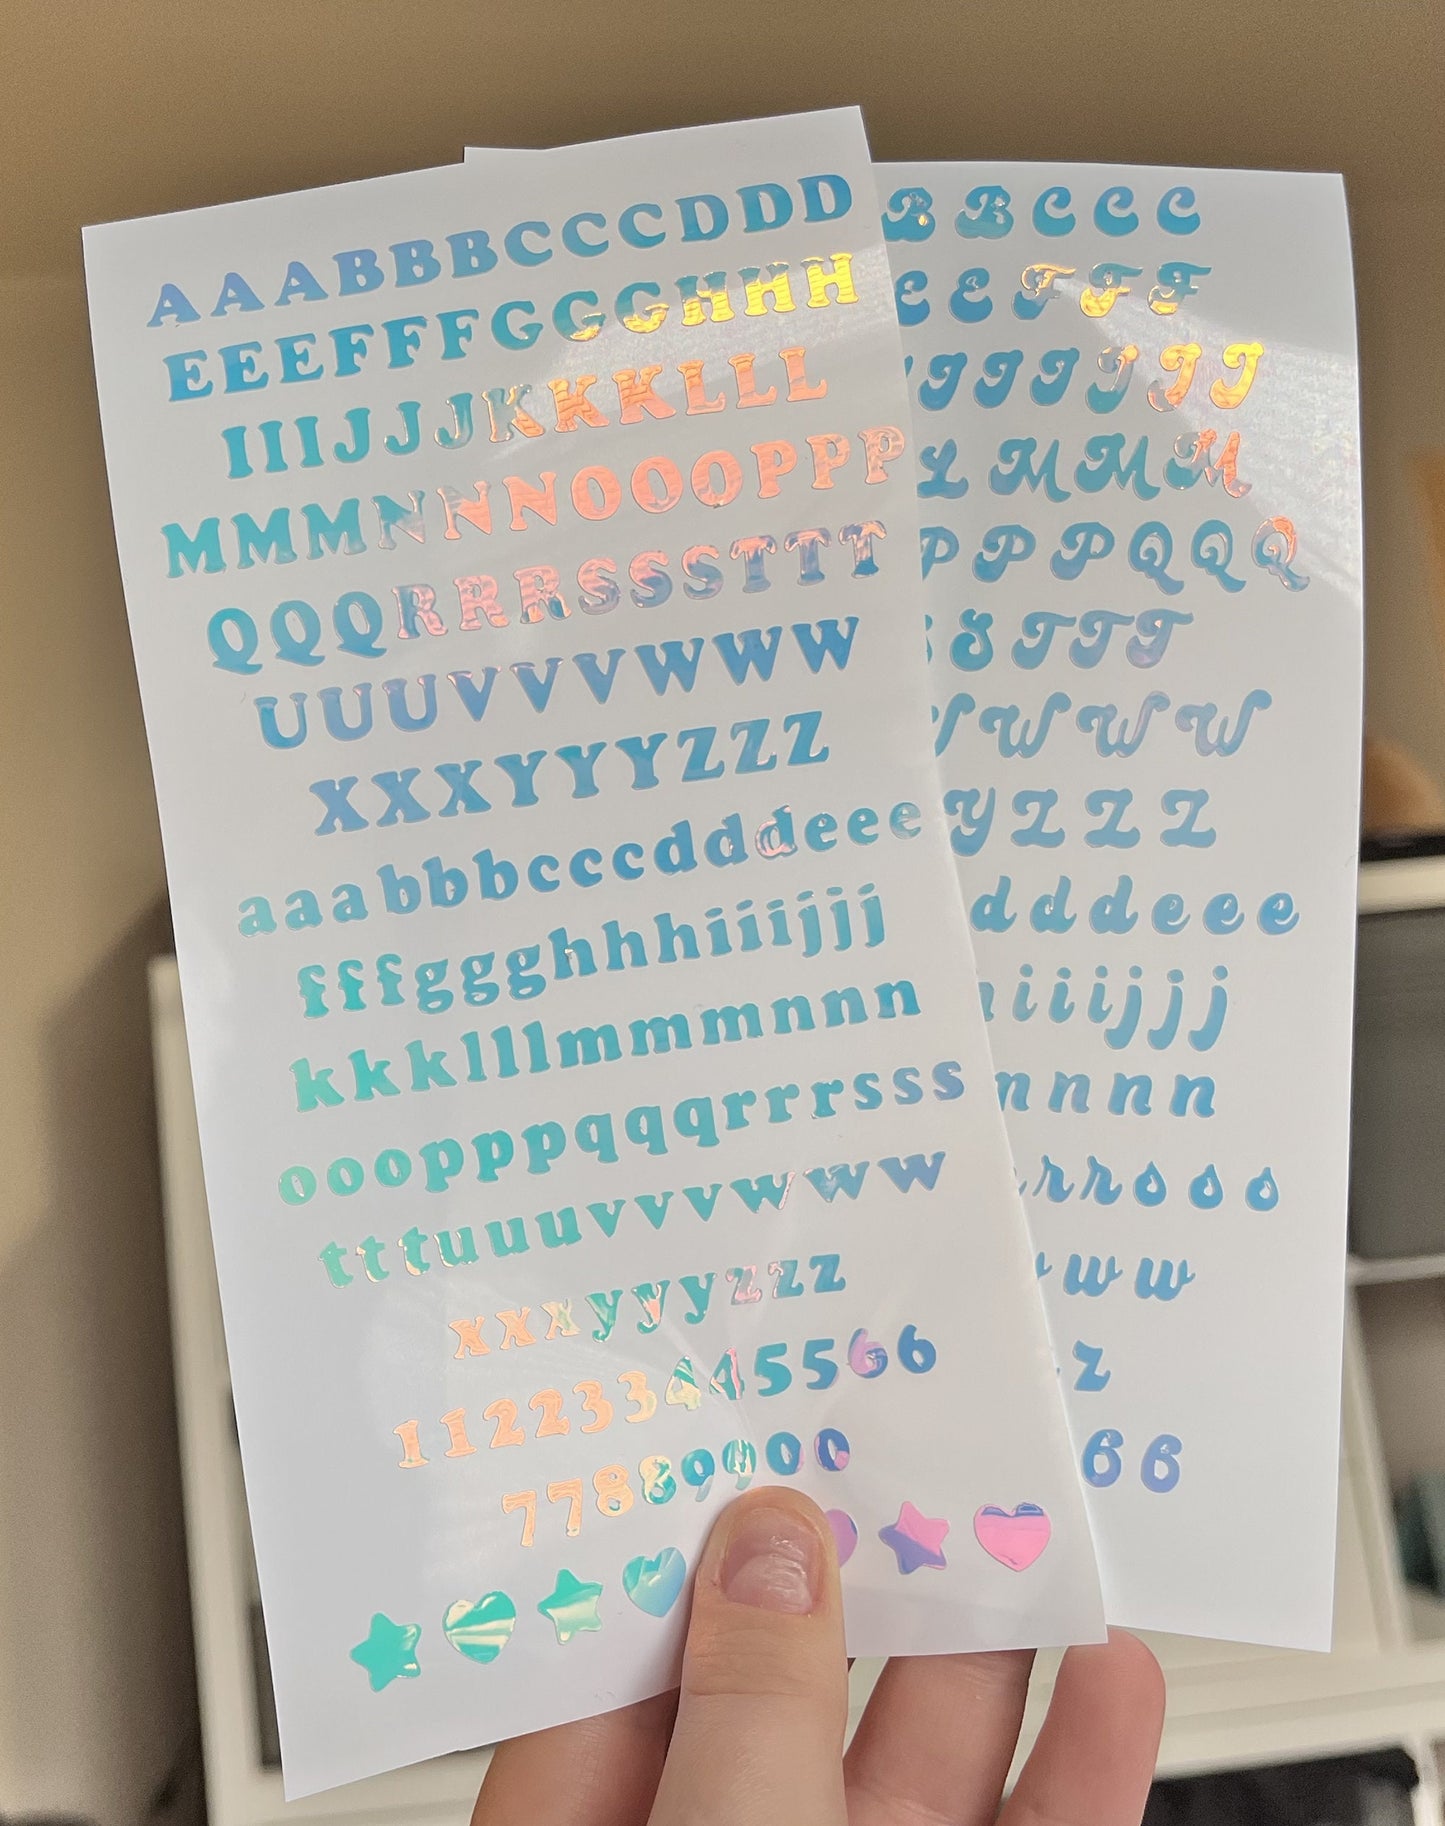 AAABBBCCCDDD
EEEFFFGGGHHH
IIIJJJKKKLLL
MMMNNNOOOPPP
QQQRRRSSSTTT
UUUVVVWWW
XXXYYYZZZ
aaabbbcccdddeee
fffggghhhiiijjj
kkklllmmmnnn
ooopppqqqrrrsss
tttuuuvvvwww
xxxyyyzzz
112233445566
77889900
BBCCC
EEFFF
IIIJJJ
LMMM
PPPQQQ
STTT
WWW
YZZZ
dddeee
iiijjj
nnn
rrsss
ww
z
66